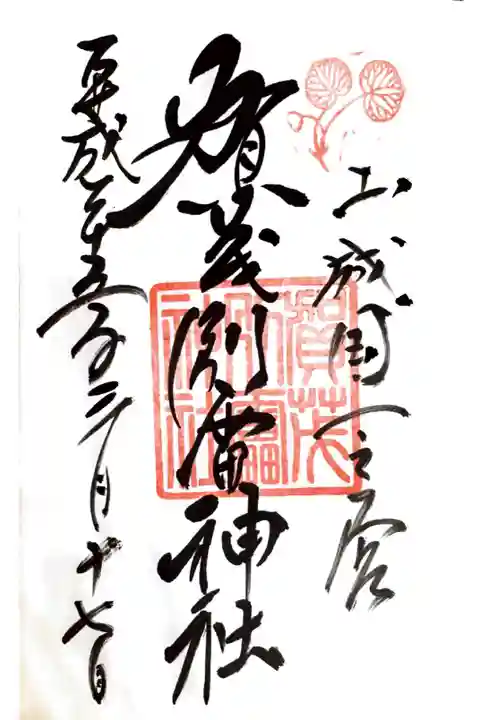 山城国一之宮
賀茂別雷神社
平成二十五年三月十七日
賀茂
別雷
神社